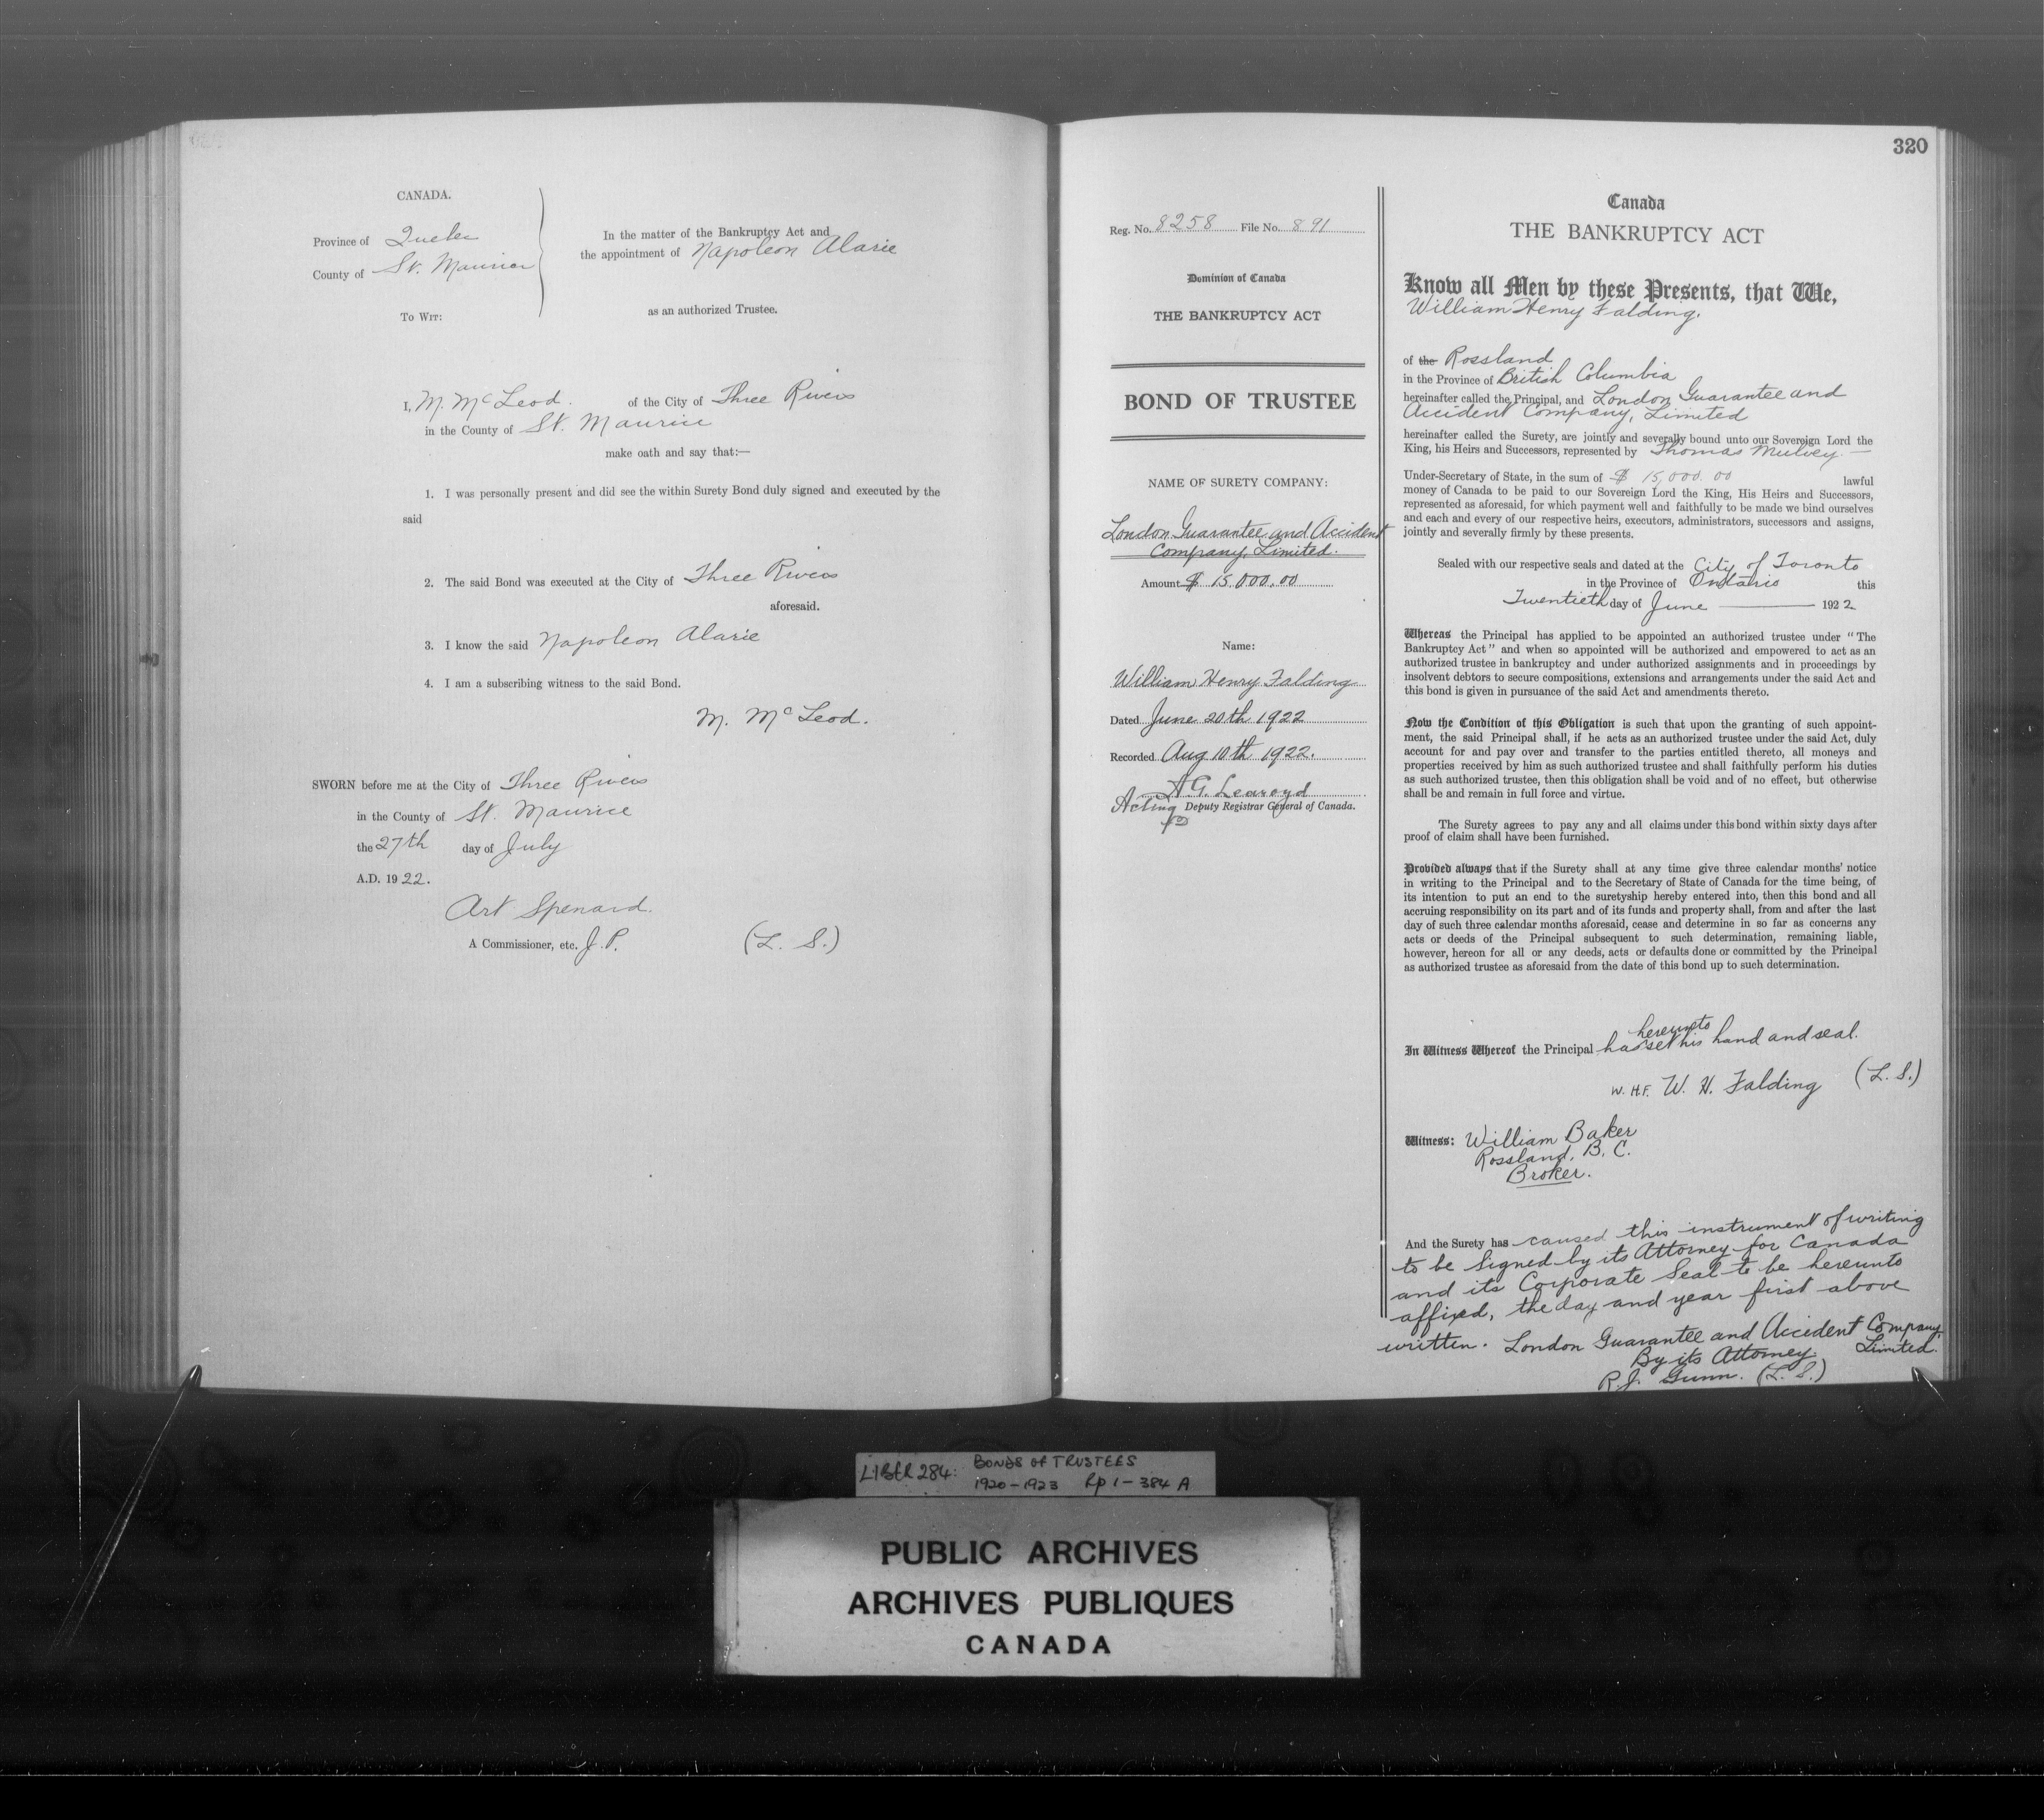 CANADA.
Province of Quebec
County of St. Maurice
To Wit:
In the matter of the Bankruptcy Act and
the appointment of Napoleon Alarie
as an authorized Trustee.
I, M. McLeod. of the City of Three Rivers
in the County of St. Maurice
make oath and say that:—
1. I was personally present and did see the within Surety Bond duly signed and executed by the
said
2. The said Bond was executed at the City of Three Rivers
aforesaid.
3. I know the said Napoleon Alarie
4. I am a subscribing witness to the said Bond.
M. McLeod.
SWORN before me at the City of Three Rivers
in the County of St. Maurice
the 27th day of July
A.D. 1922.
Art Spenard.
A Commissioner, etc. J. P. (L. S.)
320
Reg. No. 8258 File No. 891
Dominion of Canada
THE BANKRUPTCY ACT
BOND OF TRUSTEE
NAME OF SURETY COMPANY:
London Guarantee and Accident
Company, Limited.
Amount $ 15,000.00
Name:
William Henry Falding
Dated June 20th 1922
Recorded Aug 10th 1922.
A. G. Learoyd
Acting Deputy Registrar General of Canada.
Canada
THE BANKRUPTCY ACT
Know all Men by these Presents, that We,
William Henry Falding,
of the Rossland
in the Province of British Columbia
hereinafter called the Principal, and London Guarantee and
Accident Company, Limited
hereinafter called the Surety, are jointly and severally bound unto our Sovereign Lord the
King, his Heirs and Successors, represented by Thomas Mulvey —
Under-Secretary of State, in the sum of $ 15,000.00 lawful
money of Canada to be paid to our Sovereign Lord the King, His Heirs and Successors,
represented as aforesaid, for which payment well and faithfully to be made we bind ourselves
and each and every of our respective heirs, executors, administrators, successors and assigns,
jointly and severally firmly by these presents.
Sealed with our respective seals and dated at the City of Toronto
in the Province of Ontario this
Twentieth day of June — 1922
Whereas the Principal has applied to be appointed an authorized trustee under "The
Bankruptcy Act" and when so appointed will be authorized and empowered to act as an
authorized trustee in bankruptcy and under authorized assignments and in proceedings by
insolvent debtors to secure compositions, extensions and arrangements under the said Act and
this bond is given in pursuance of the said Act and amendments thereto.
Now the Condition of this Obligation is such that upon the granting of such appoint-
ment, the said Principal shall, if he acts as an authorized trustee under the said Act, duly
account for and pay over and transfer to the parties entitled thereto, all moneys and
properties received by him as such authorized trustee and shall faithfully perform his duties
as such authorized trustee, then this obligation shall be void and of no effect, but otherwise
shall be and remain in full force and virtue.
The Surety agrees to pay any and all claims under this bond within sixty days after
proof of claim shall have been furnished.
Provided always that if the Surety shall at any time give three calendar months' notice
in writing to the Principal and to the Secretary of State of Canada for the time being, of
its intention to put an end to the suretyship hereby entered into, then this bond and all
accruing responsibility on its part and of its funds and property shall, from and after the last
day of such three calendar months aforesaid, cease and determine in so far as concerns any
acts or deeds of the Principal subsequent to such determination, remaining liable,
however, hereon for all or any deeds, acts or defaults done or committed by the Principal
as authorized trustee as aforesaid from the date of this bond up to such determination.
hereunto
In Witness Whereof the Principal has set his hand and seal.
W. H. F. W. H. Falding (L. S.)
Witness: William Baker
Rossland, B. C.
Broker.
And the Surety has caused this instrument of writing
to be signed by its Attorney for Canada
and its Corporate Seal to be hereunto
affixed, the day and year first above
written. London Guarantee and Accident Company,
Limited.
By its Attorney
R. J. Gunn. (L. S.)
LIBER 284: BONDS OF TRUSTEES
1920-1923 Rp 1-384 A
PUBLIC ARCHIVES
ARCHIVES PUBLIQUES
CANADA